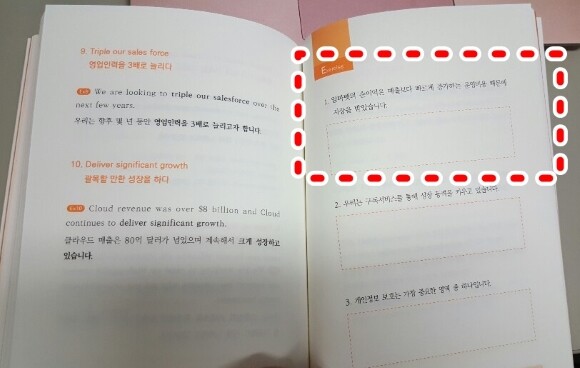 9. Triple our sales force
영업인력을 3배로 늘리다
We are looking to triple our salesforce over the
next few years.
우리는 향후 몇 년 동안 영업인력을 3배로 늘리고자 합니다.
10. Deliver significant growth
괄목할 만한 성장을 하다
Cloud revenue was over $8 billion and Cloud
continues to deliver significant growth.
클라우드 매출은 80억 달러가 넘었으며 계속해서 크게 성장하고
있습니다.
Exercise
1. 알리바바의 순이익은 매출보다 빠르게 증가하는 운영비용 때문에
지장을 받았습니다.
2. 우리는 구독서비스를 통해 성장 동력을 키우고 있습니다
3. 개인정보 보호는 가장 중요한 영역 중 하나입니다.